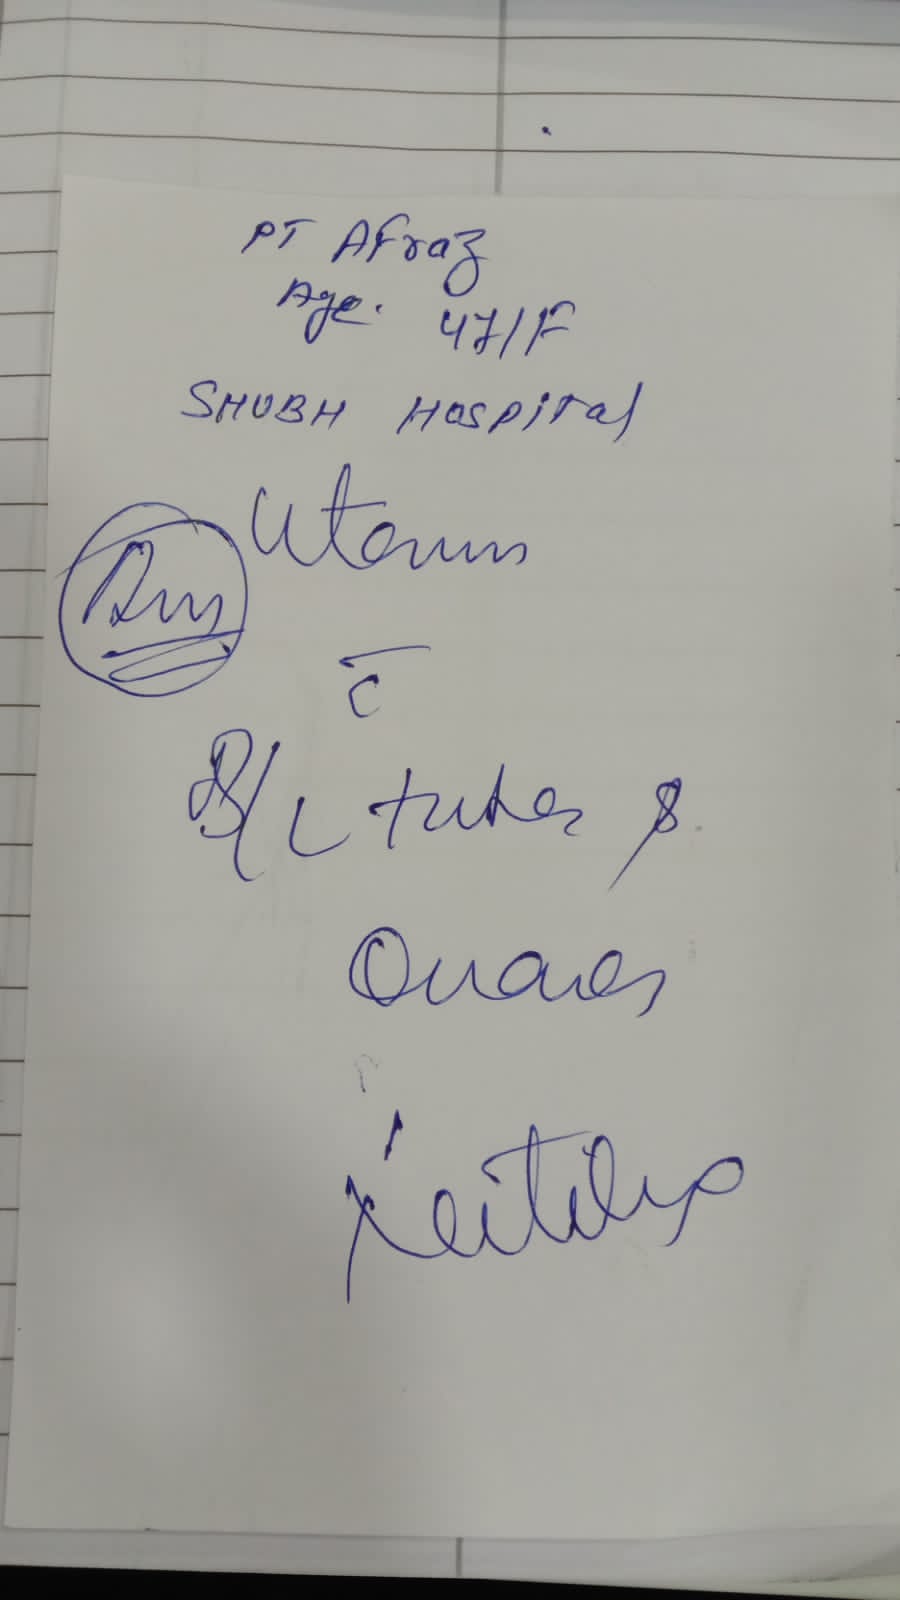 PT Afraz
Age. 47/F
SHUBH Hospital
Uterus
c̄
B/L tubes &
Ovaries